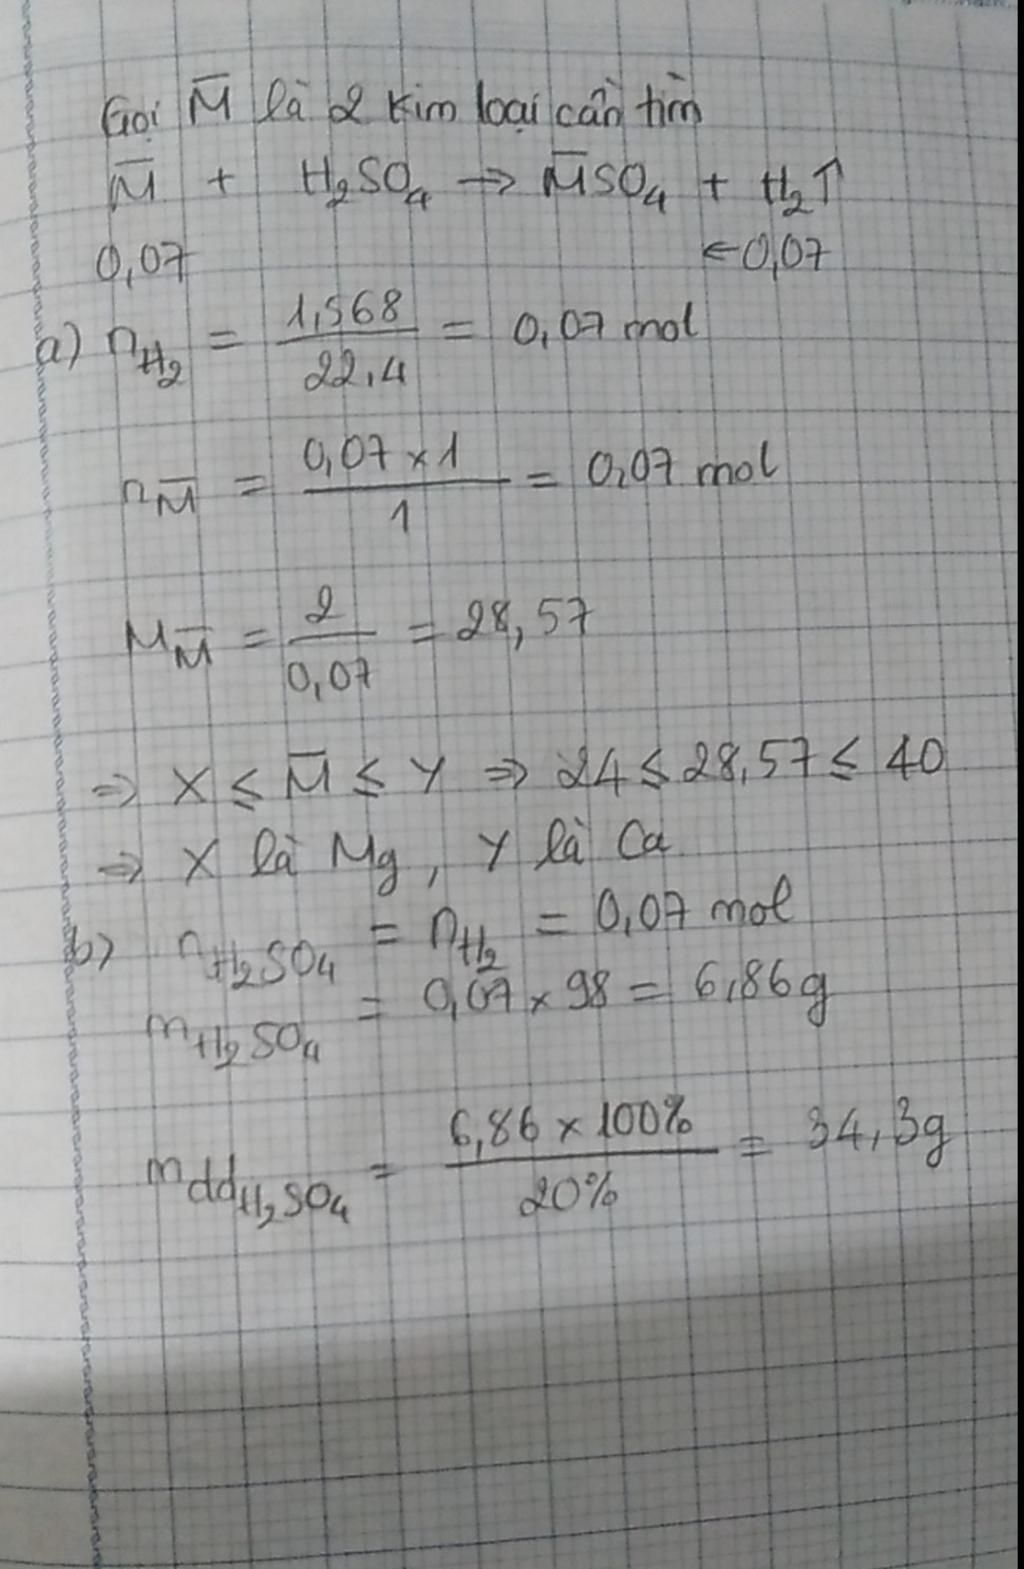 Gọi M̅ là 2 kim loại cần tìm
M̅ + H₂SO₄ → M̅SO₄ + H₂↑
0,07 ←0,07
a) nH₂ = 1,568/22,4 = 0,07 mol
nM̅ = 0,07 × 1/1 = 0,07 mol
MM̅ = 2/0,07 = 28,57
⇒ X ≤ M̅ ≤ Y ⇒ 24 ≤ 28,57 ≤ 40
⇒ X là Mg, Y là Ca
b) nH₂SO₄ = nH₂ = 0,07 mol
mH₂SO₄ = 0,07 × 98 = 6,86g
mddH₂SO₄ = 6,86 × 100%/20% = 34,3g